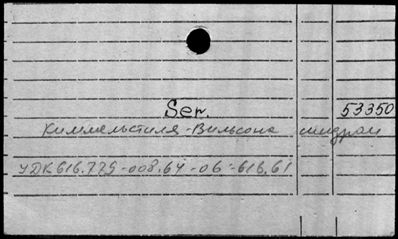 Ser. 53350
Киммельстиля-Вильсона синдром
УДК 616.779-008.64-06-616.61